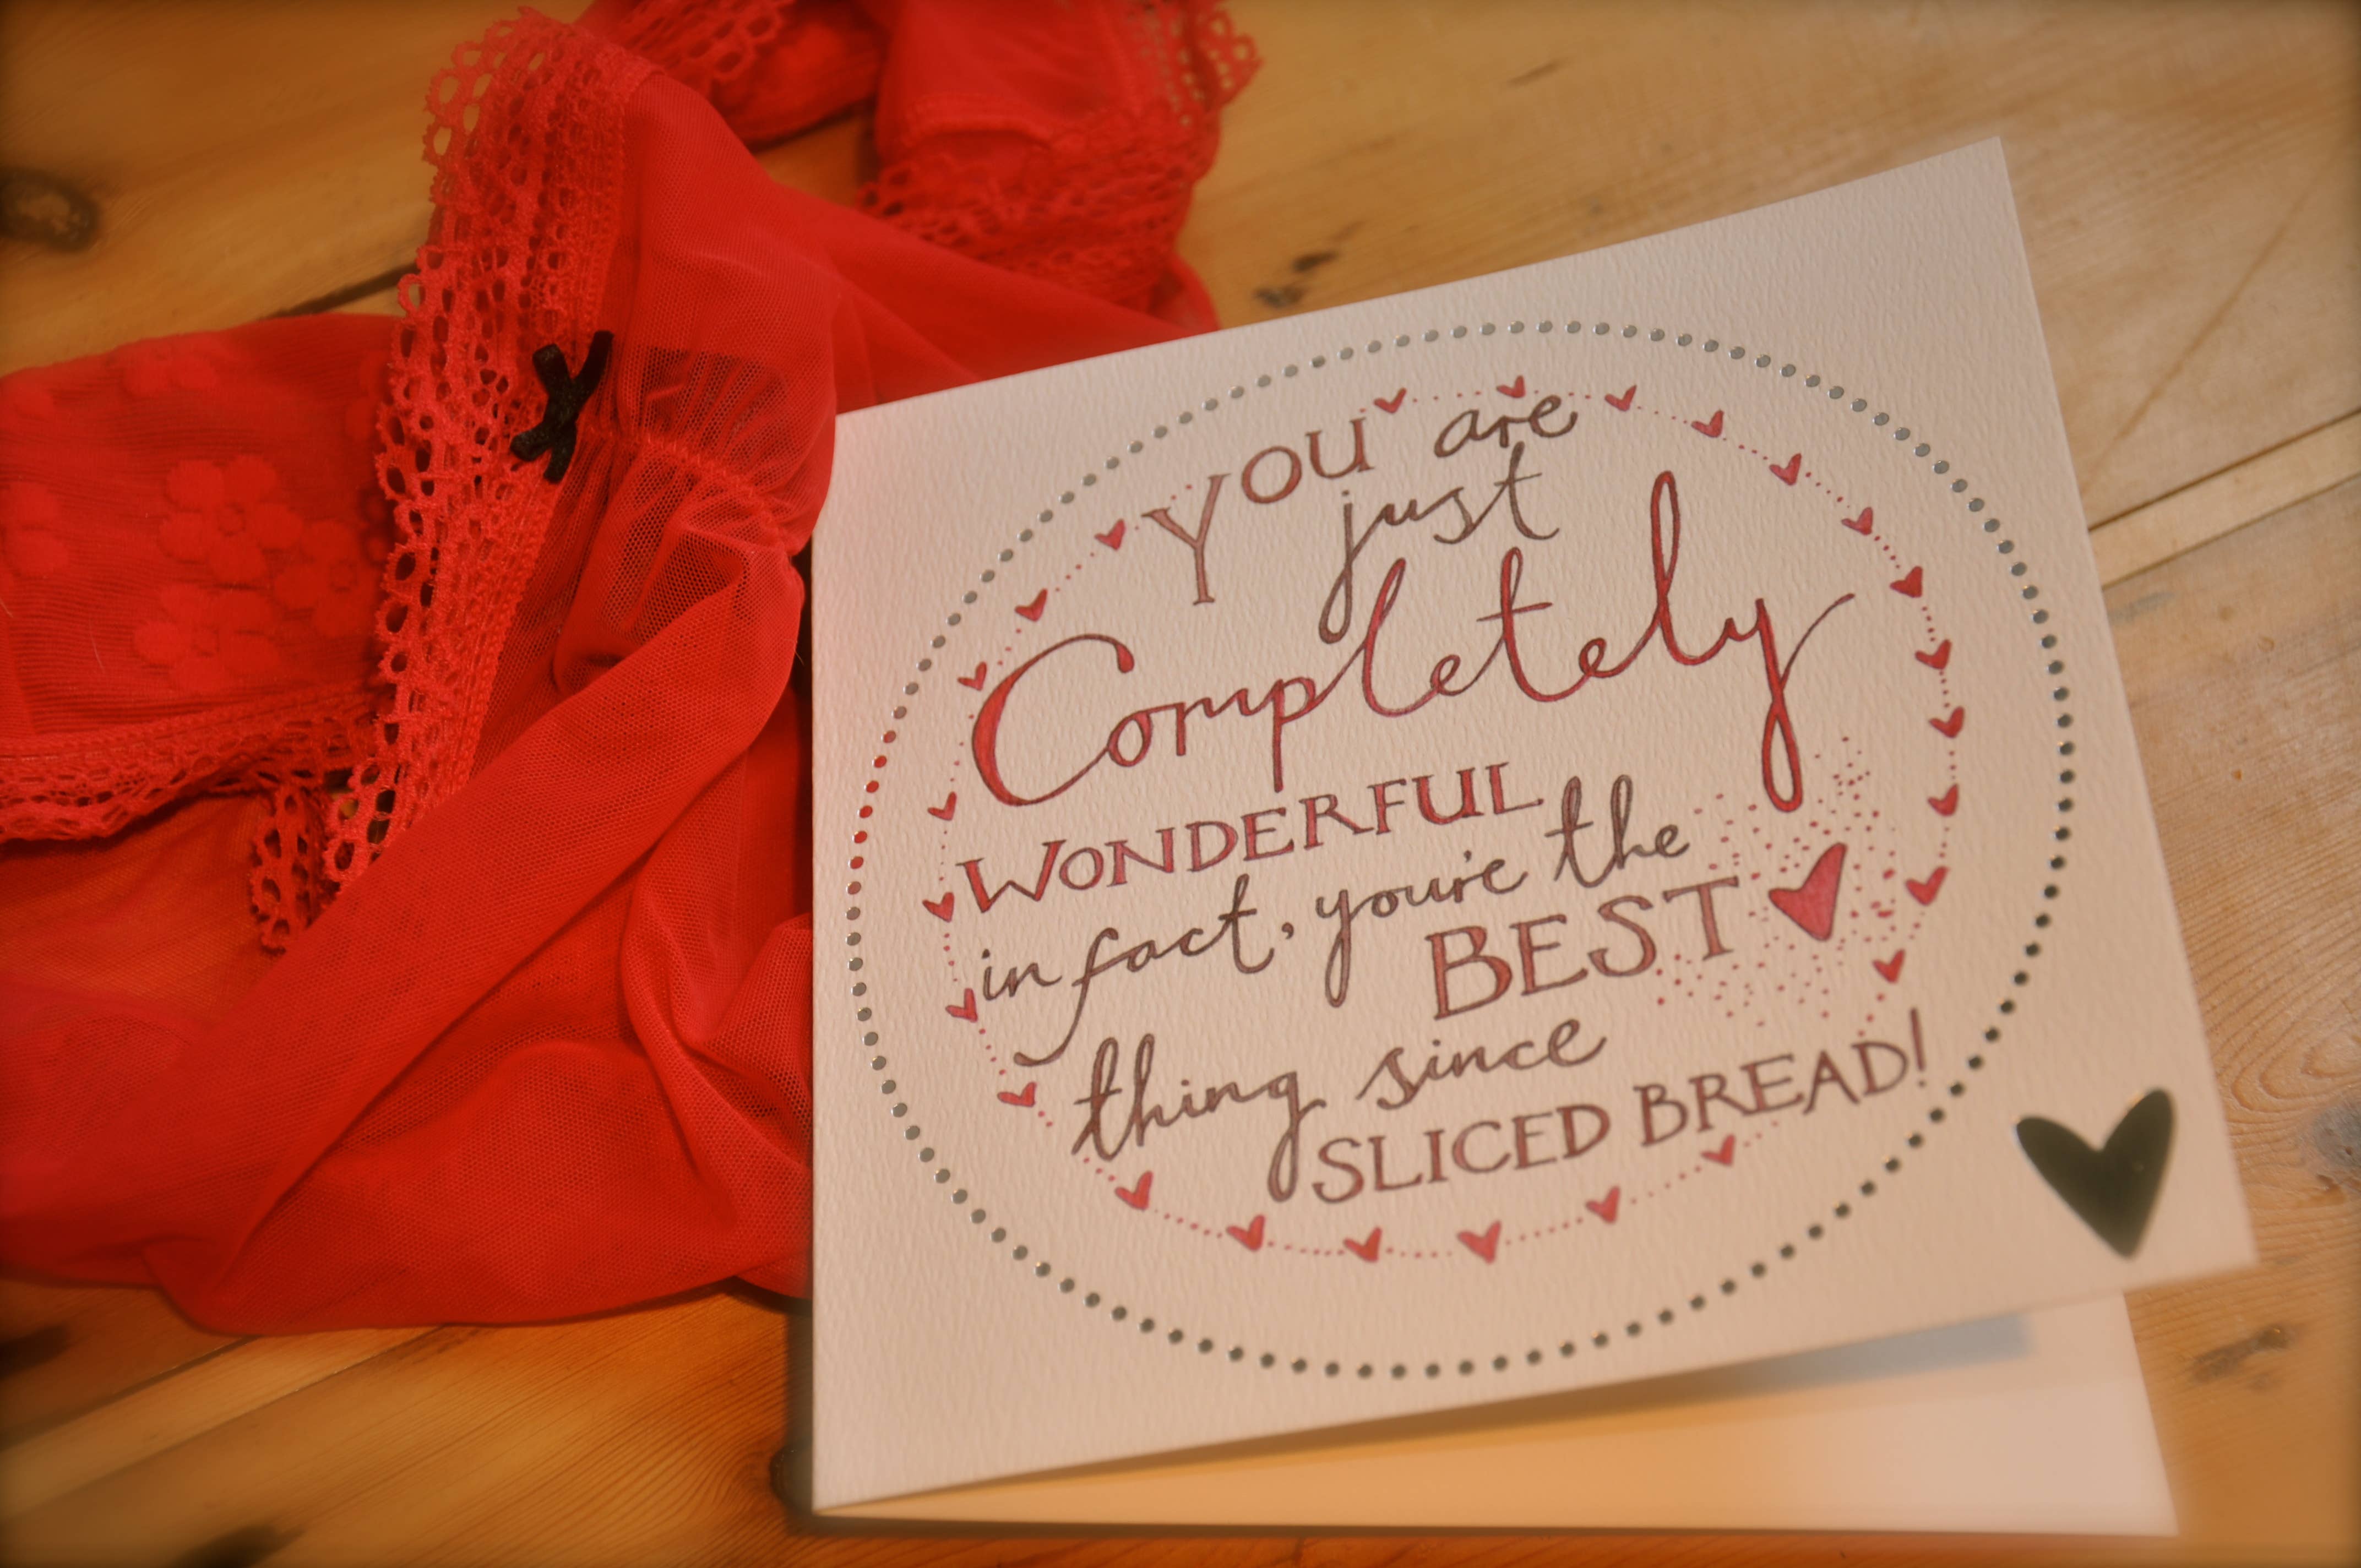 You are
just
Completely
WONDERFUL
in fact, you're the
BEST
thing since
SLICED BREAD!